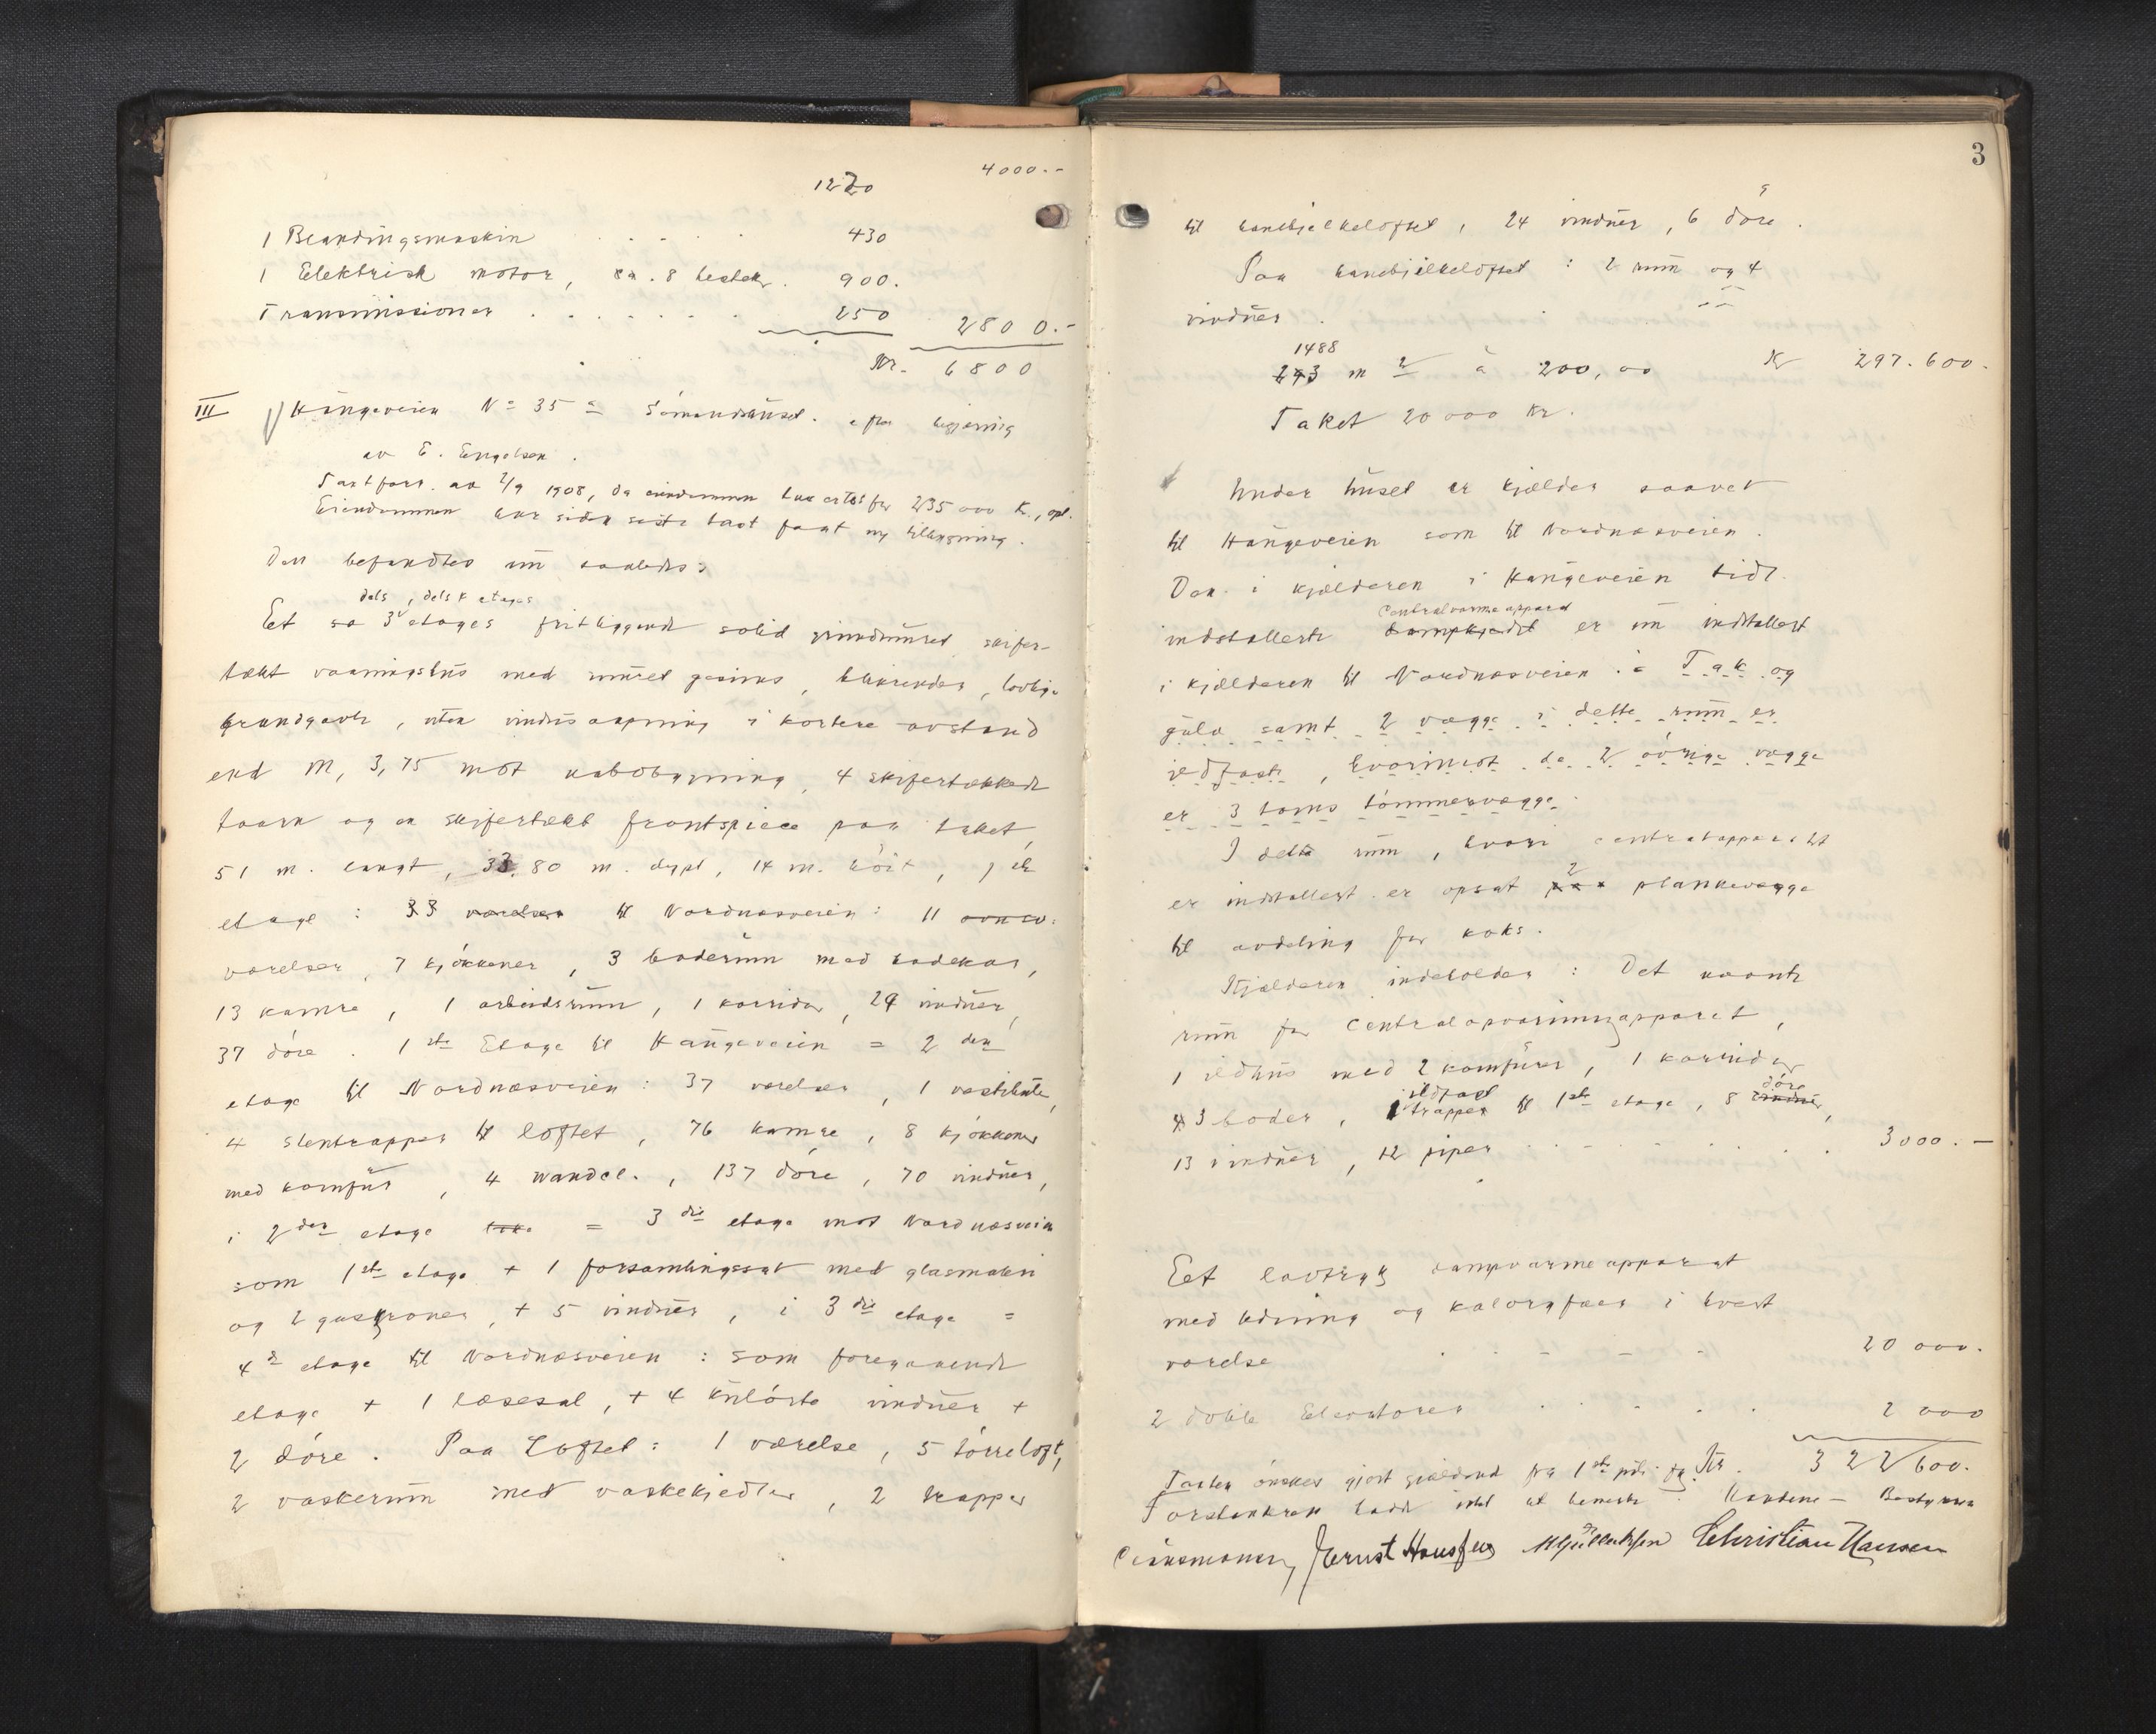 4000.-
1220
1 Blandingsmaskin . . . . 430
1 Elektrisk motor, ca. 8 hestek. 900.
Transmissioner . . . . . . 250 2800.-
Kr. 6800
III Haugeveien No 35 = Sømandshuset. efter begjæring
av E. Engelsen.
Takstforr. av 2/9 1908, da eiendommen blev takst for 235000 Kr., opl.
Eiendommen har siden sidste takst faat ny tilbygning.
Den befandtes nu saaledes:
dels, dels 4 etages
Et sa 3 etages fritliggende solid grundmuret skifer-
tækt vaaningshus med muret gesims, blikrender, lovlige
brandgavle, uten vindusaapning i kortere avstand
end M, 3,75 mot nabobygning, 4 skifertækkede
taarn og en skifertækt frontspiece paa taket,
51 m. langt, 33,80 m. dypt, 14 m. høit, 1ste
etage : 33 værelser til Nordnæsveien : 11
værelser, 7 kjøkkener, 3 baderum med badekar,
13 kamre, 1 arbeidsrum, 1 korridor, 29 vinduer,
37 døre. 1ste Etage til Haugeveien = 2den
etage til Nordnæsveien : 37 værelser, 1 vestibule,
4 stentrapper til loftet, 76 kamre, 8 kjøkkener
med komfur, 4 wandcl., 137 døre, 70 vinduer,
i 2den etage = 3die etage mot Nordnæsveien
som 1ste etage + 1 forsamlingssal med glasmaleri
og 2 gaskroner, + 5 vinduer, i 3die etage =
4de etage til Nordnæsveien : som foregaaende
etage + 1 læsesal, + 4 kulørte vinduer +
2 døre. Paa Loftet : 1 værelse, 5 tørreloft,
2 vaskerum med vaskekjedler, 2 trapper
3
til hanebjelkeloftet, 24 vinduer, 6 døre.
Paa hanebjelkeloftet : 2 rum og 4
vinduer.
1488
243 m2 à 200,00 K 297.600.
Taket 20000 Kr.
Under huset er kjælder saavel
til Haugeveien som til Nordnæsveien.
Den i kjælderen i Haugeveien tidl.
Centralvarmeapparat
indstallerte dampkjedel er nu indstallert
i kjælderen til Nordnæsveien. Tak og
gulv samt 2 vægge i dette rum er
ildfaste, hvorimot de 2 øvrige vægge
er 3 toms tømmervægge.
I dette rum, hvori centralapparatet
2
er indstallert er opsat plankevægge
til avdeling for koks.
Kjælderen indeholder : Det nævnte
rum for Centralopvarmingapparat,
1 ildhus med 2 komfurer, 1 korridor,
ildfast døre
43 boder, 1 trapper til 1ste etage, 8 vinduer,
13 vinduer, 12 piper . . . . . . 3000.-
Et lavtryk dampvarmeapparat
med ledning og kaloryfaer i hvert
værelse . - - - - 20 000.
2 doble Elevatorer . . . . . 2 000
Taksten ønskes gjort gjældende fra 1ste juli . Kr. 322600.
Forstanderen hadde intet at bemerke. Bestyrer
Ernst Hansen Christian Hansen